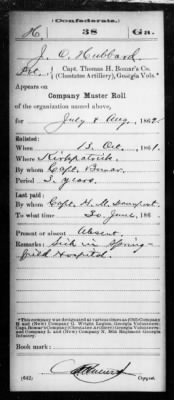 (Confederate.)
H 38 Ga.
J. O. Hubbard
Pvt., Capt. Thomas H. Bomar's Co.
(Chestatee Artillery), Georgia Vols.*
Appears on
Company Muster Roll
of the organization named above,
for July & Aug, 1862.
Enlisted:
When 13 Oct, 1861.
Where Kirkpatrick.
By whom Capt. Bomar.
Period 3 years.
Last paid:
By whom Capt.
To what time 30 June, 186
Present or absent Absent.
Remarks: Sick in Spring-
field Hospital.
*This company was designated at various times as (Old) Company
H and (New) Company Wright Legion, Georgia Volunteers;
Capt. Bomar's Company (Chestatee Artillery) Georgia Volunteers;
and Company L and (New) Company N, 38th Regiment Georgia
Infantry.
Book mark:
(642) Copyist.